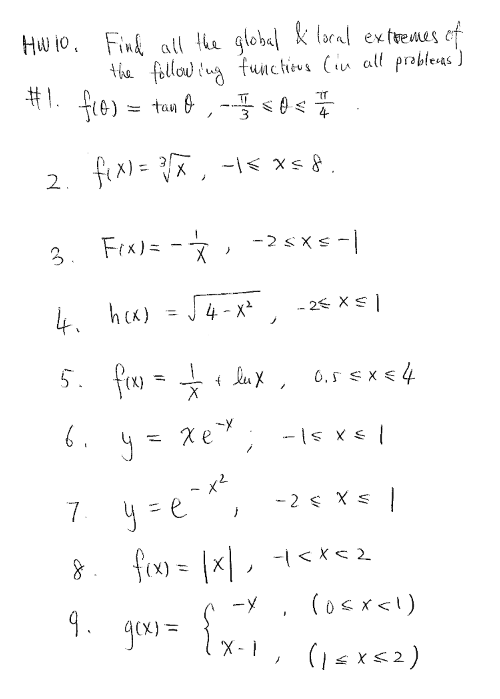 HW 10. Find all the global & local extremes of
the following functions (in all problems)
#1. f(θ) = tan θ, -π/3 ≤ θ ≤ π/4.
2. f(x) = ∛x, -1 ≤ x ≤ 8.
3. F(x) = -1/x, -2 ≤ x ≤ -1
4. h(x) = √(4-x²), -2 ≤ x ≤ 1
5. f(x) = 1/x + ln x, 0.5 ≤ x ≤ 4
6. y = xe^(-x); -1 ≤ x ≤ 1
7. y = e^(-x²), -2 ≤ x ≤ 1
8. f(x) = |x|, -1 < x < 2
9. g(x) = { -x, (0 ≤ x < 1)
x-1, (1 ≤ x ≤ 2)